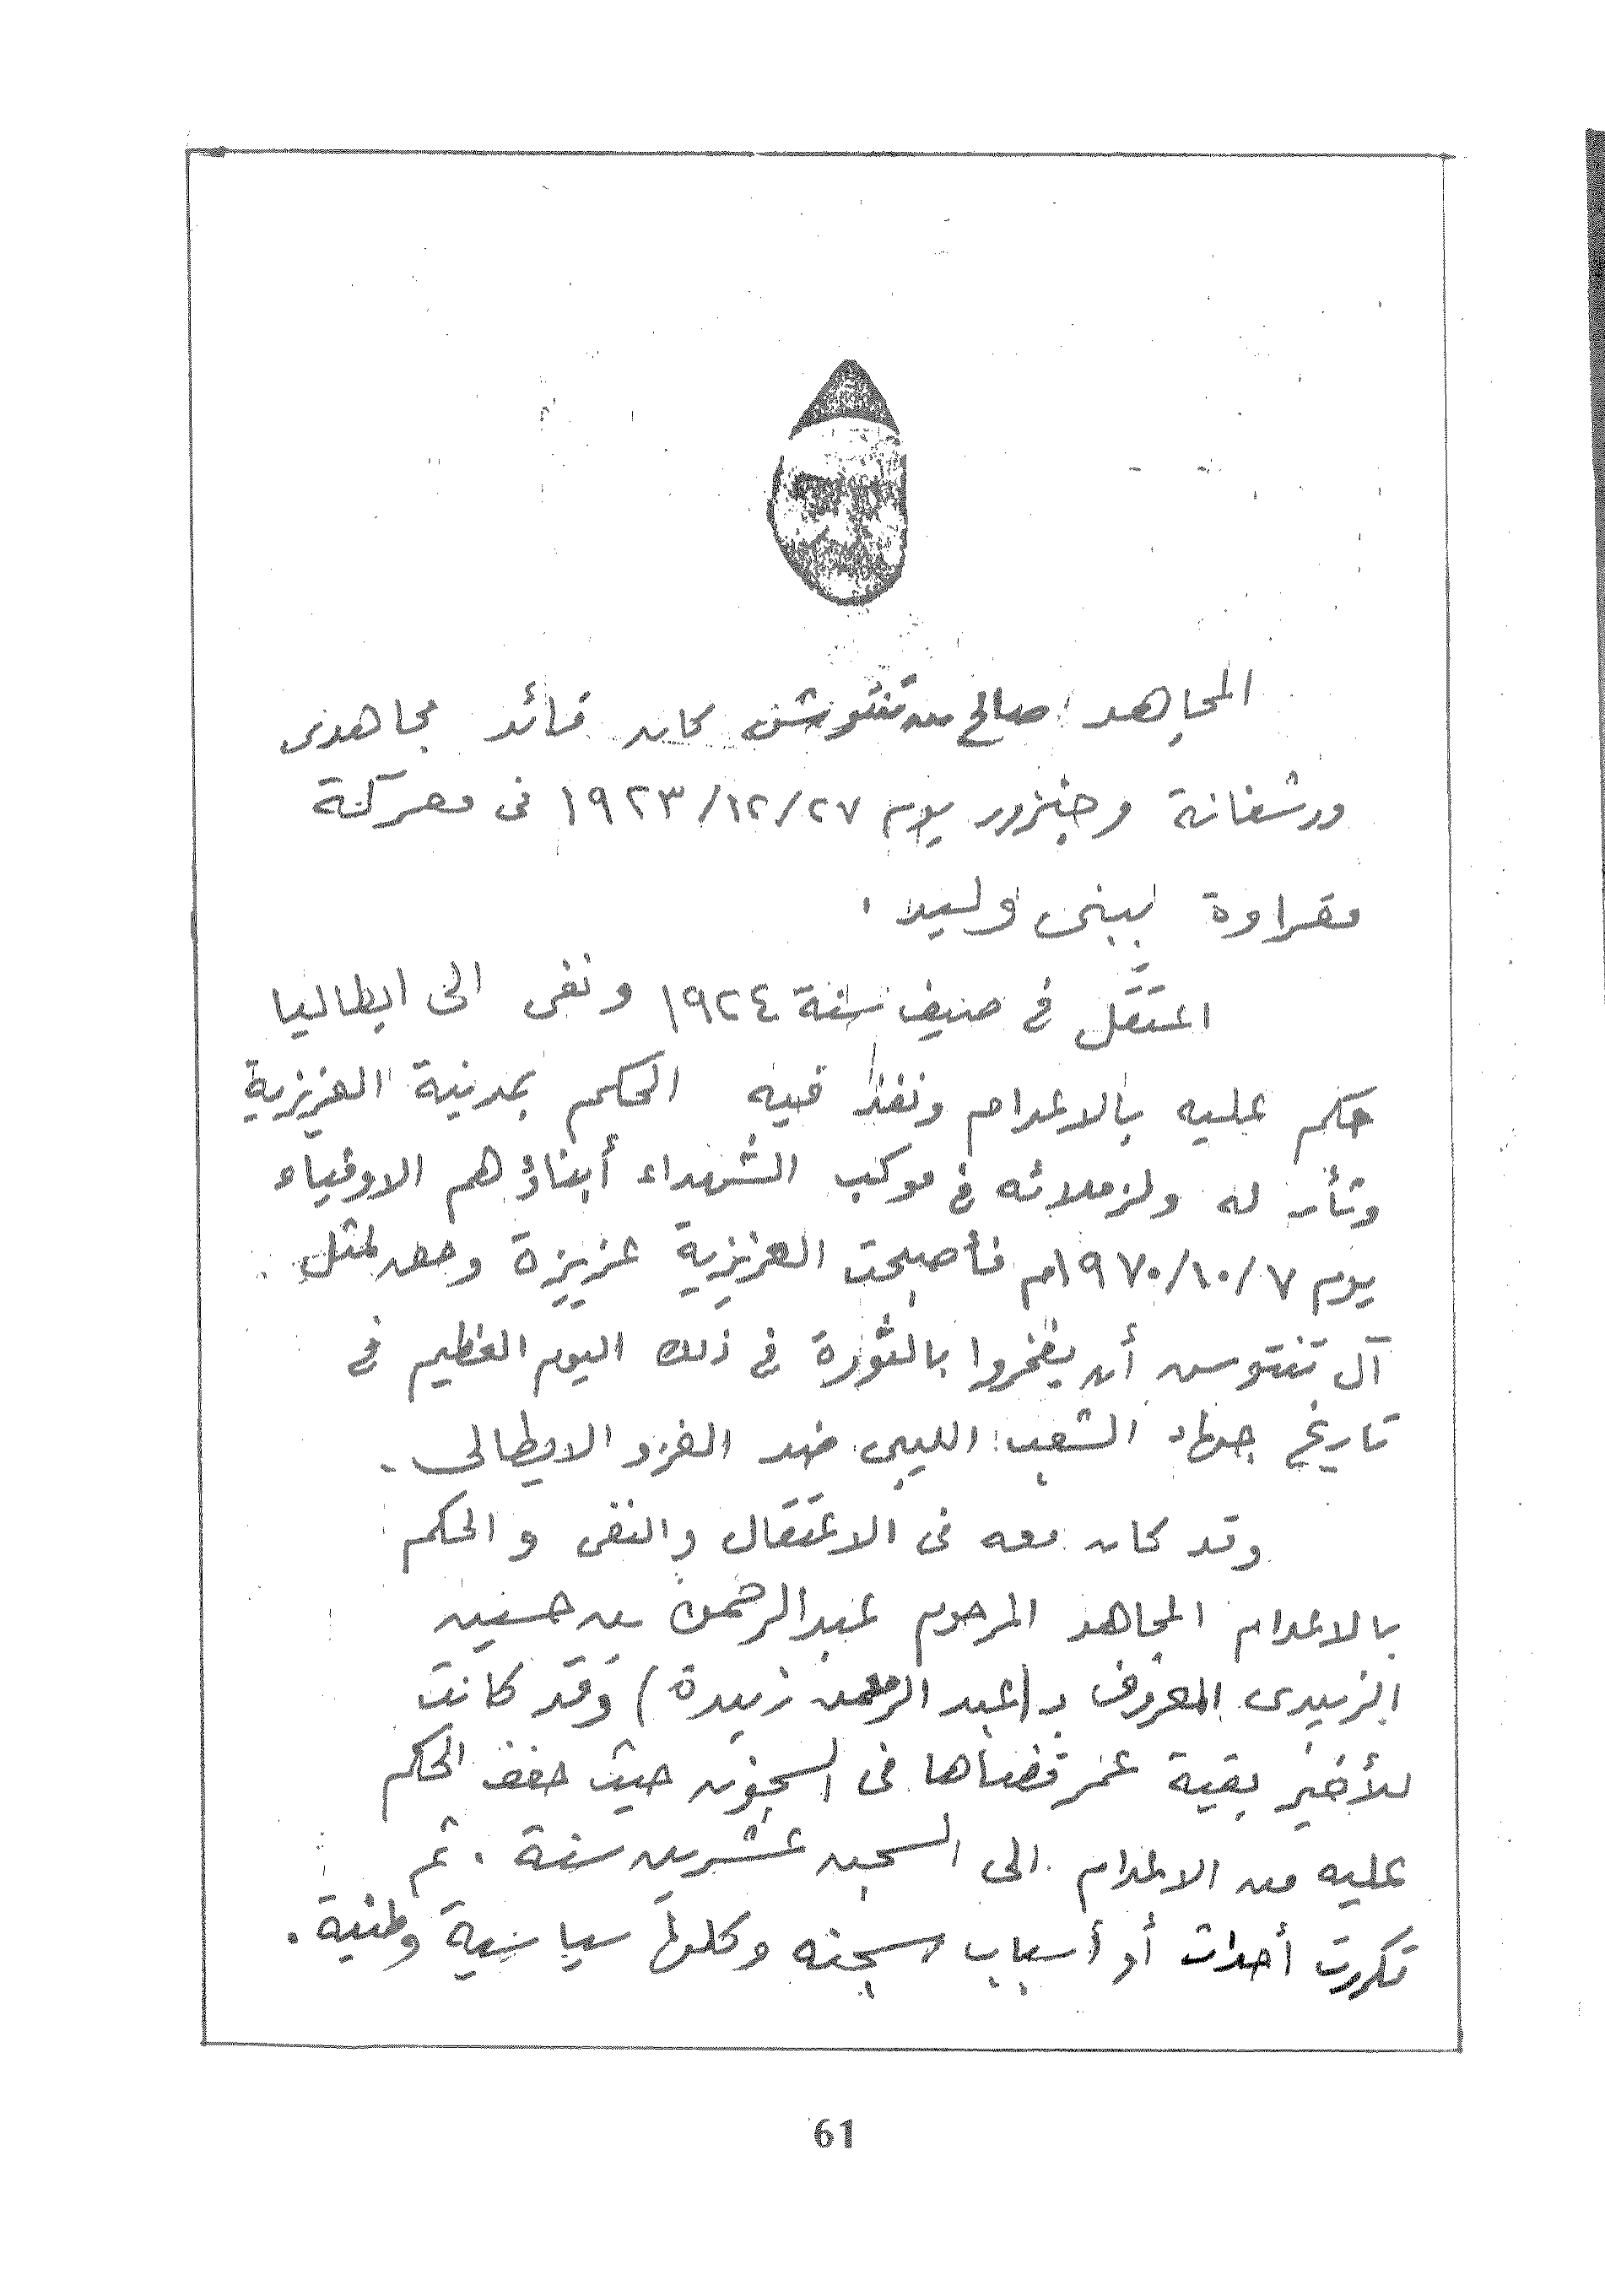 المجاهد صالح بن تنتوش كان قائد مجاهدى
ورشفانة وجنزور يوم ١٩٢٣/١٢/٢٧ فى معركة
مقراوة ببنى وليد .
اعتقل فى صيف سنة ١٩٢٤ ونفى الى ايطاليا
حكم عليه بالاعدام ونفذ فيه الحكم بمدينة العزيزية
وثأر له ولزملائه فى موكب الشهداء أبناؤهم الاوفياء
يوم ١٩٧٠/١٠/٧م فأصبحت العزيزية عزيزة وحق لمثل
آل تنتوش أن يفخروا بالثورة فى ذلك اليوم العظيم فى
تاريخ جهاد الشعب الليبى ضد الغزو الايطالى .
وقد كان معه فى الاعتقال والنفى والحكم
بالاعدام المجاهد المرحوم عبدالرحمن بن حسين
الزبيدى المعروف بـ (عبد الرحمن زبيدة) وقد كانت
للأخير بقية عمر قضاها فى السجون حيث خفف الحكم
عليه من الاعدام الى السجن عشرين سنة . ثم
تكررت أحداث أو أسباب سجنه وكلها سياسية وطنية .
61